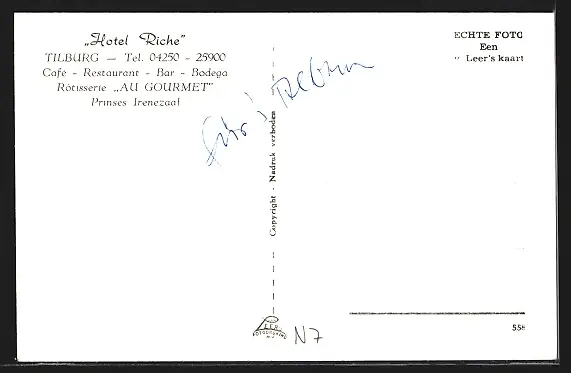 „Hotel Riche”
TILBURG — Tel. 04250 - 25900
Café - Restaurant - Bar - Bodega
Rôtisserie „AU GOURMET”
Prinses Irenezaal
ECHTE FOTO
Een
" Leer's kaart
Copyright - Nadruk verboden
LEER
FOTODRUKKERIJ
N7
558